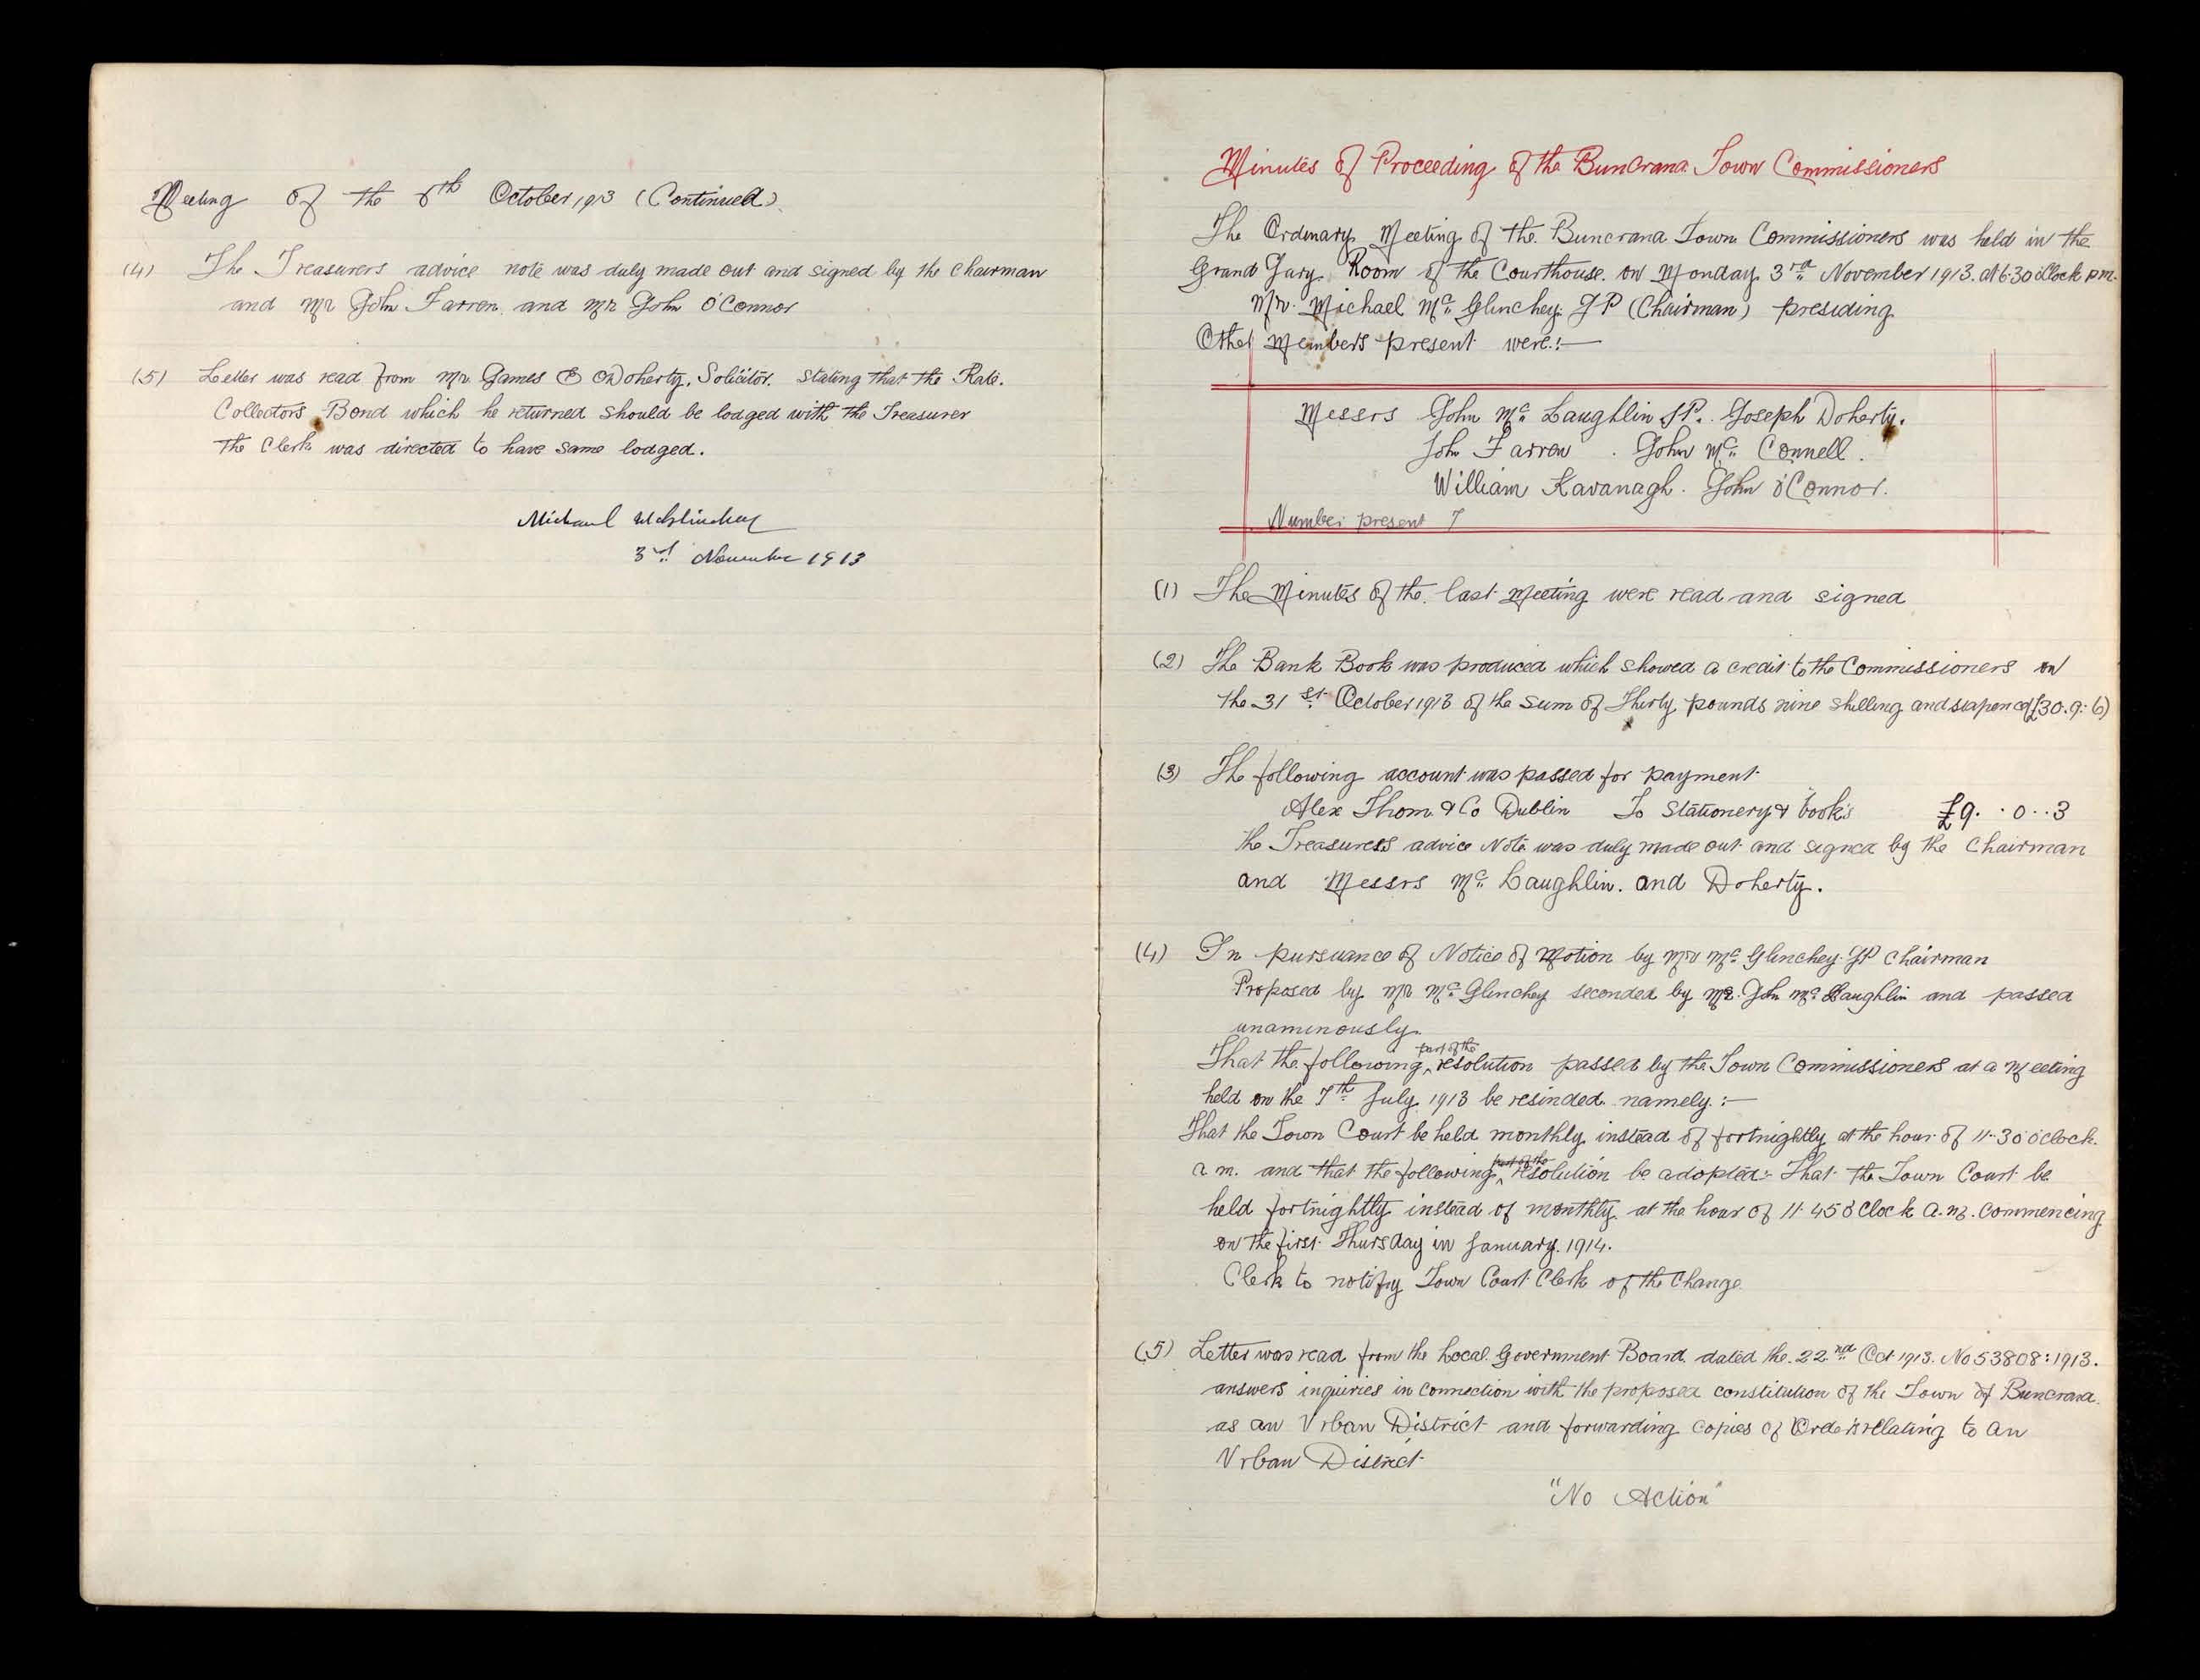 Meeting of the 6th October 1913 (Continued).
(4) The Treasurers advice note was duly made out and signed by the Chairman
and Mr John Farren and Mr John O'Connor
(5) Letter was read from Mr James E O'Doherty, Solicitor. stating that the Rate.
Collectors Bond which he returned should be lodged with the Treasurer
The Clerk was directed to have same lodged.
Michael McGlinchey
3rd November 1913
Minutes of Proceeding of the Buncrana Town Commissioners
The Ordinary Meeting of the Buncrana Town Commissioners was held in the
Grand Jury Room of the Courthouse on Monday 3rd November 1913. at 6.30 o'Clock p.m.
Mr. Michael Mc Glinchey JP (Chairman) presiding
Other Members present were:—
Messrs John Mc Laughlin JP. Joseph Doherty.
John Farren . John Mc Connell.
William Kavanagh. John O'Connor.
Number present 7
(1) The Minutes of the last Meeting were read and signed
(2) The Bank Book was produced which showed a credit to the Commissioners on
the 31st October 1913 of the sum of Thirty pounds nine shilling and sixpence (£30.9.6)
(3) The following account was passed for payment
Alex Thom & Co Dublin To Stationery & books £9. . 0 . . 3
the Treasurers advice Note was duly made out and signed by the Chairman
and Messrs Mc Laughlin. and Doherty.
(4) In pursuance of Notice of Motion by Mr Mc Glinchey JP Chairman
Proposed by Mr Mc Glinchey seconded by Mr. John Mc Laughlin and passed
unaminously.
part of the
That the following ^ resolution passed by the Town Commissioners at a Meeting
held on the 7th July 1913 be resinded. namely:—
That the Town Court be held monthly instead of fortnightly at the hour of 11.30 o'clock.
part of the
a.m. and that the following ^ resolution be adopted:- That the Town Court be
held fortnightly instead of monthly. at the hour of 11.45 o'Clock a.m. commencing
on the first Thursday in January. 1914.
Clerk to notifny Town Court Clerk of the Change
(5) Letter was read from the Local Government Board dated the 22nd Oct 1913. No 53808:1913.
answers inquiries in connection with the proposed constitution of the Town of Buncrana.
as an Urban District and forwarding copies of Orders relating to an
Urban District
"No Action"